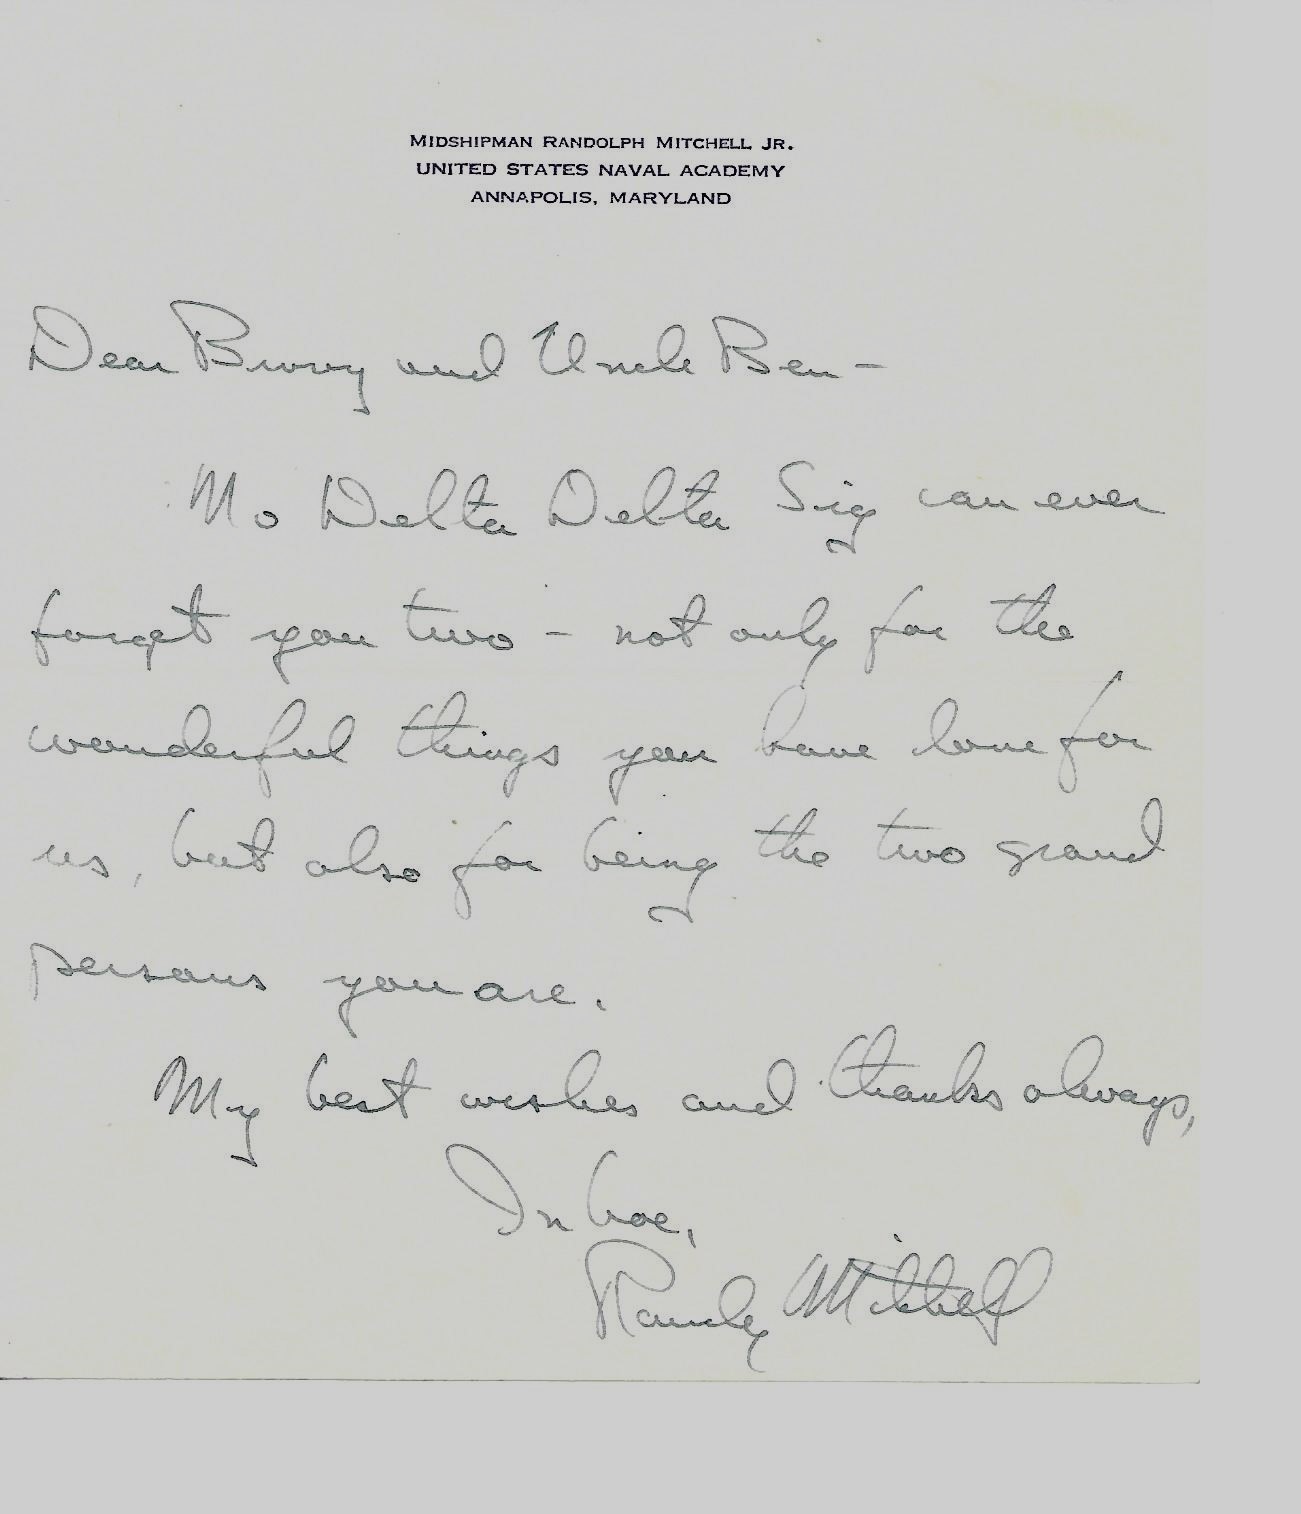 MIDSHIPMAN RANDOLPH MITCHELL JR.
UNITED STATES NAVAL ACADEMY
ANNAPOLIS, MARYLAND
Dear and Uncle Ben –
No Delta Delta Sig can ever
forget you two – not only for the
wonderful things you have done for
us, but also for being the two grand
persons you are.
My best wishes and thanks always,
In hoc,
Randy Mitchell